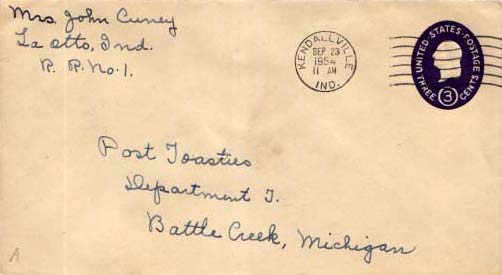 Mrs. John Cuney
La Otto, Ind.
R. R. No. 1.
KENDALLVILLE
SEP 23
1954
11 AM
IND.
UNITED·STATES·POSTAGE
THREE 3 CENTS
Post Toasties
Department T.
Battle Creek, Michigan
A